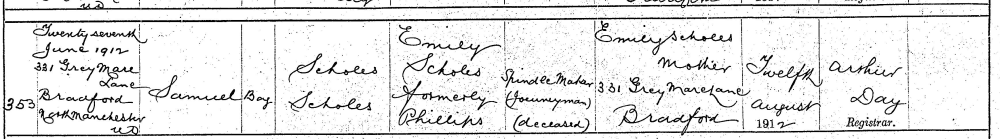 353
Twenty seventh
June 1912
331 Grey Mare
Lane
Bradford
North Manchester
U.D
Samuel
Boy
Scholes
Scholes
Emily
Scholes
formerly
Phillips
Spindle Maker
(Journeyman)
(deceased)
Emily Scholes
Mother
331 Grey Mare Lane
Bradford
Twelfth
August
1912
Arthur
Day
Registrar.